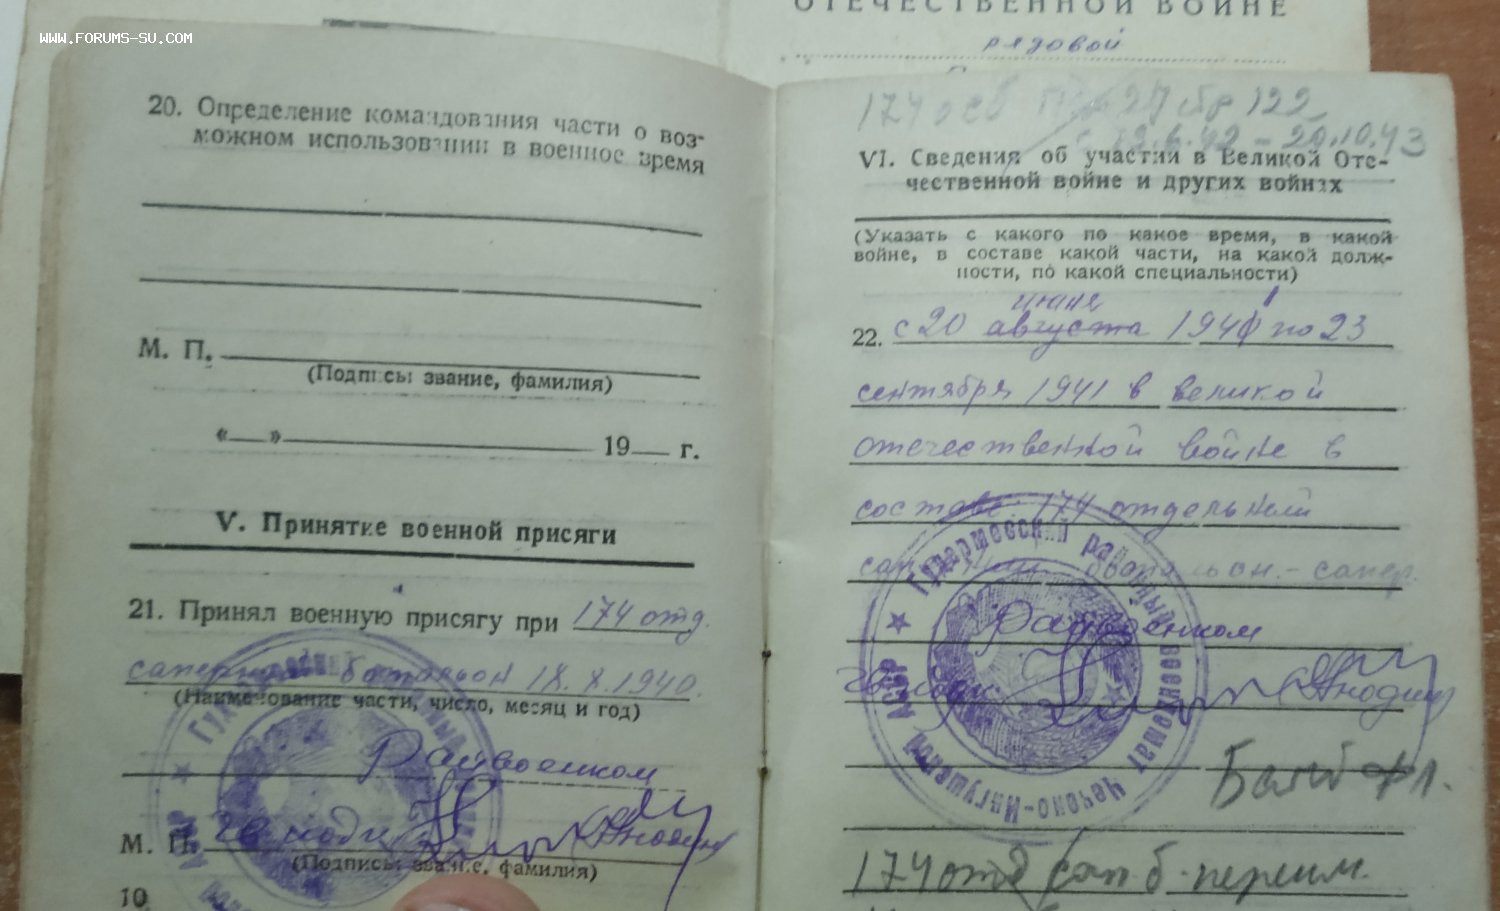 WWW.FORUMS-SU.COM
ОТЕЧЕСТВЕННОЙ ВОЙНЕ
рядовой
20. Определение командования части о воз-
можном использовании в военное время
М. П.
(Подпись, звание, фамилия)
« » 19 г.
V. Принятие военной присяги
21. Принял военную присягу при 174 отд.
саперный батальон 18.X.1940.
(Наименование части, число, месяц и год)
Райвоенком
М. П.
(Подпись, звание, фамилия)
10.
174 осб 122
12.6.42 – 20.10.43
VI. Сведения об участии в Великой Оте-
чественной войне и других войнах
(Указать с какого по какое время, в какой
войне, в составе какой части, на какой долж-
ности, по какой специальности)
июня
22. с 20 августа 1941 по 23
сентября 1941 в великой
отечественной войне в
составе 174 отдельный
батальон.- сапер.
Райвоенком
Гудермесский районный военкомат
Чечено-Ингушской АССР
174 отд сап. б. переим.